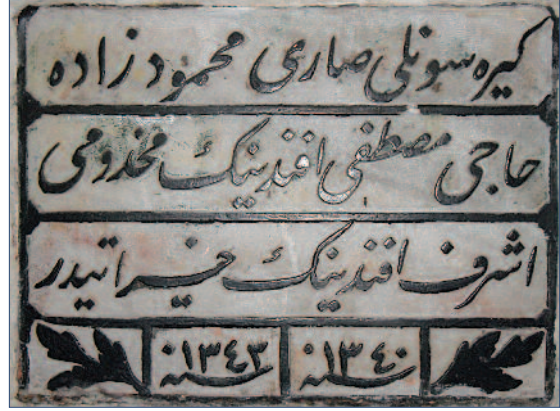 كیره سونلی صاری محمود زاده
حاجی مصطفی افندینك مخدومی
اشرف افندینك خیراتیدر
سنه ١٣٤٠ سنه ١٣٤٣